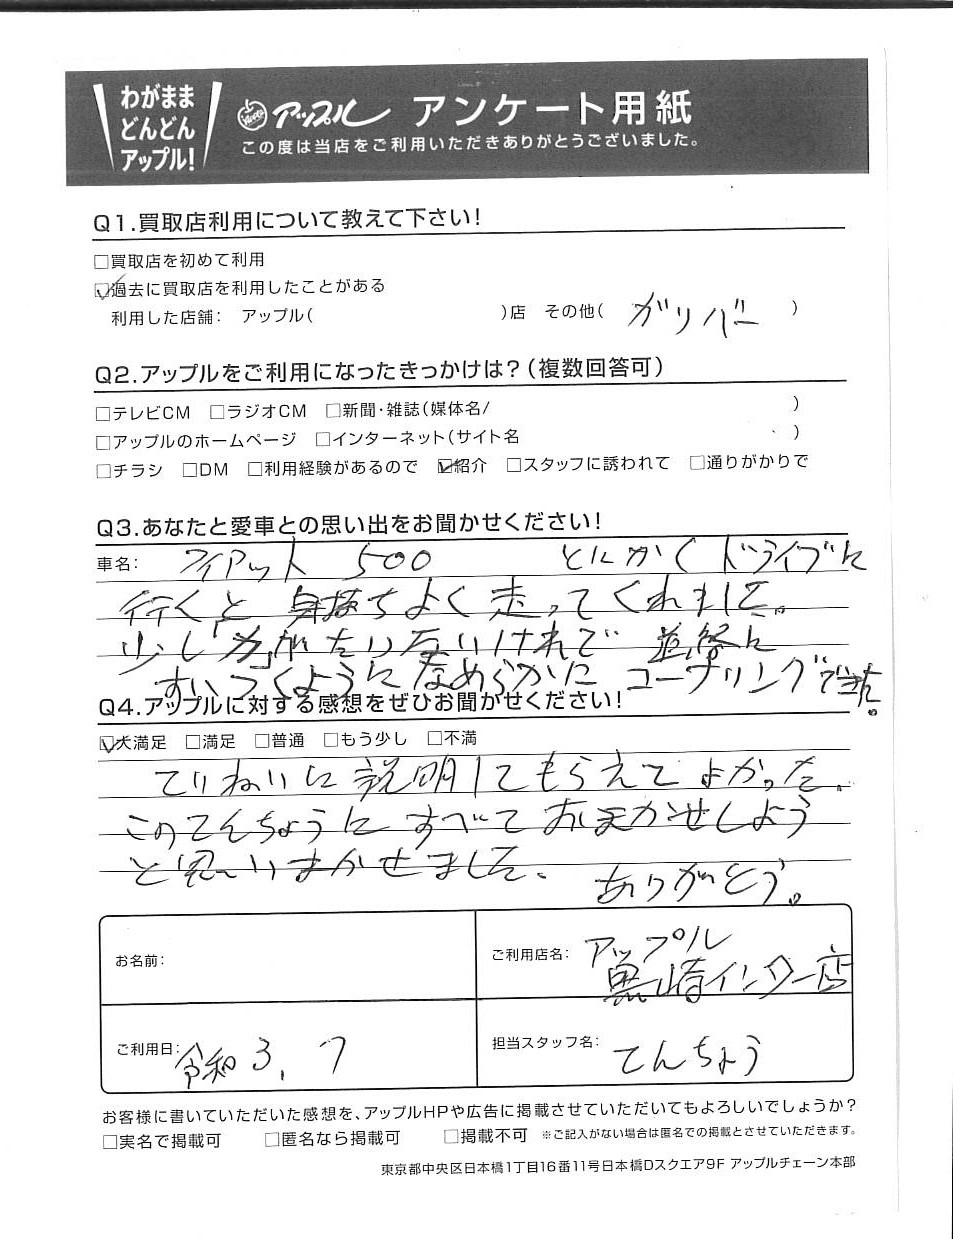 わがまま
どんどん
アップル!
アップル アンケート用紙
この度は当店をご利用いただきありがとうございました。
Q1.買取店利用について教えて下さい!
□買取店を初めて利用
☑過去に買取店を利用したことがある
利用した店舗: アップル( )店 その他( ガリバー )
Q2.アップルをご利用になったきっかけは?(複数回答可)
□テレビCM □ラジオCM □新聞・雑誌(媒体名/ )
□アップルのホームページ □インターネット(サイト名 )
□チラシ □DM □利用経験があるので ☑紹介 □スタッフに誘われて □通りがかりで
Q3.あなたと愛車との思い出をお聞かせください!
車名: フィアット 500 とにかくドライブに
行くと 気持ちよく走ってくれました。
少し「力」がたりないけれど 道路に
すいつくようになめらかに コーナリングできた。
Q4.アップルに対する感想をぜひお聞かせください!
☑大満足 □満足 □普通 □もう少し □不満
ていねいに説明してもらえてよかった。
このてんちょうにすべておまかせしよう
と思いまかせました。 ありがとう。
お名前:
ご利用店名: アップル
黒崎インター店
ご利用日: 令和3.7
担当スタッフ名: てんちょう
お客様に書いていただいた感想を、アップルHPや広告に掲載させていただいてもよろしいでしょうか?
□実名で掲載可 □匿名なら掲載可 □掲載不可 ※ご記入がない場合は匿名での掲載とさせていただきます。
東京都中央区日本橋1丁目16番11号日本橋Dスクエア9F アップルチェーン本部